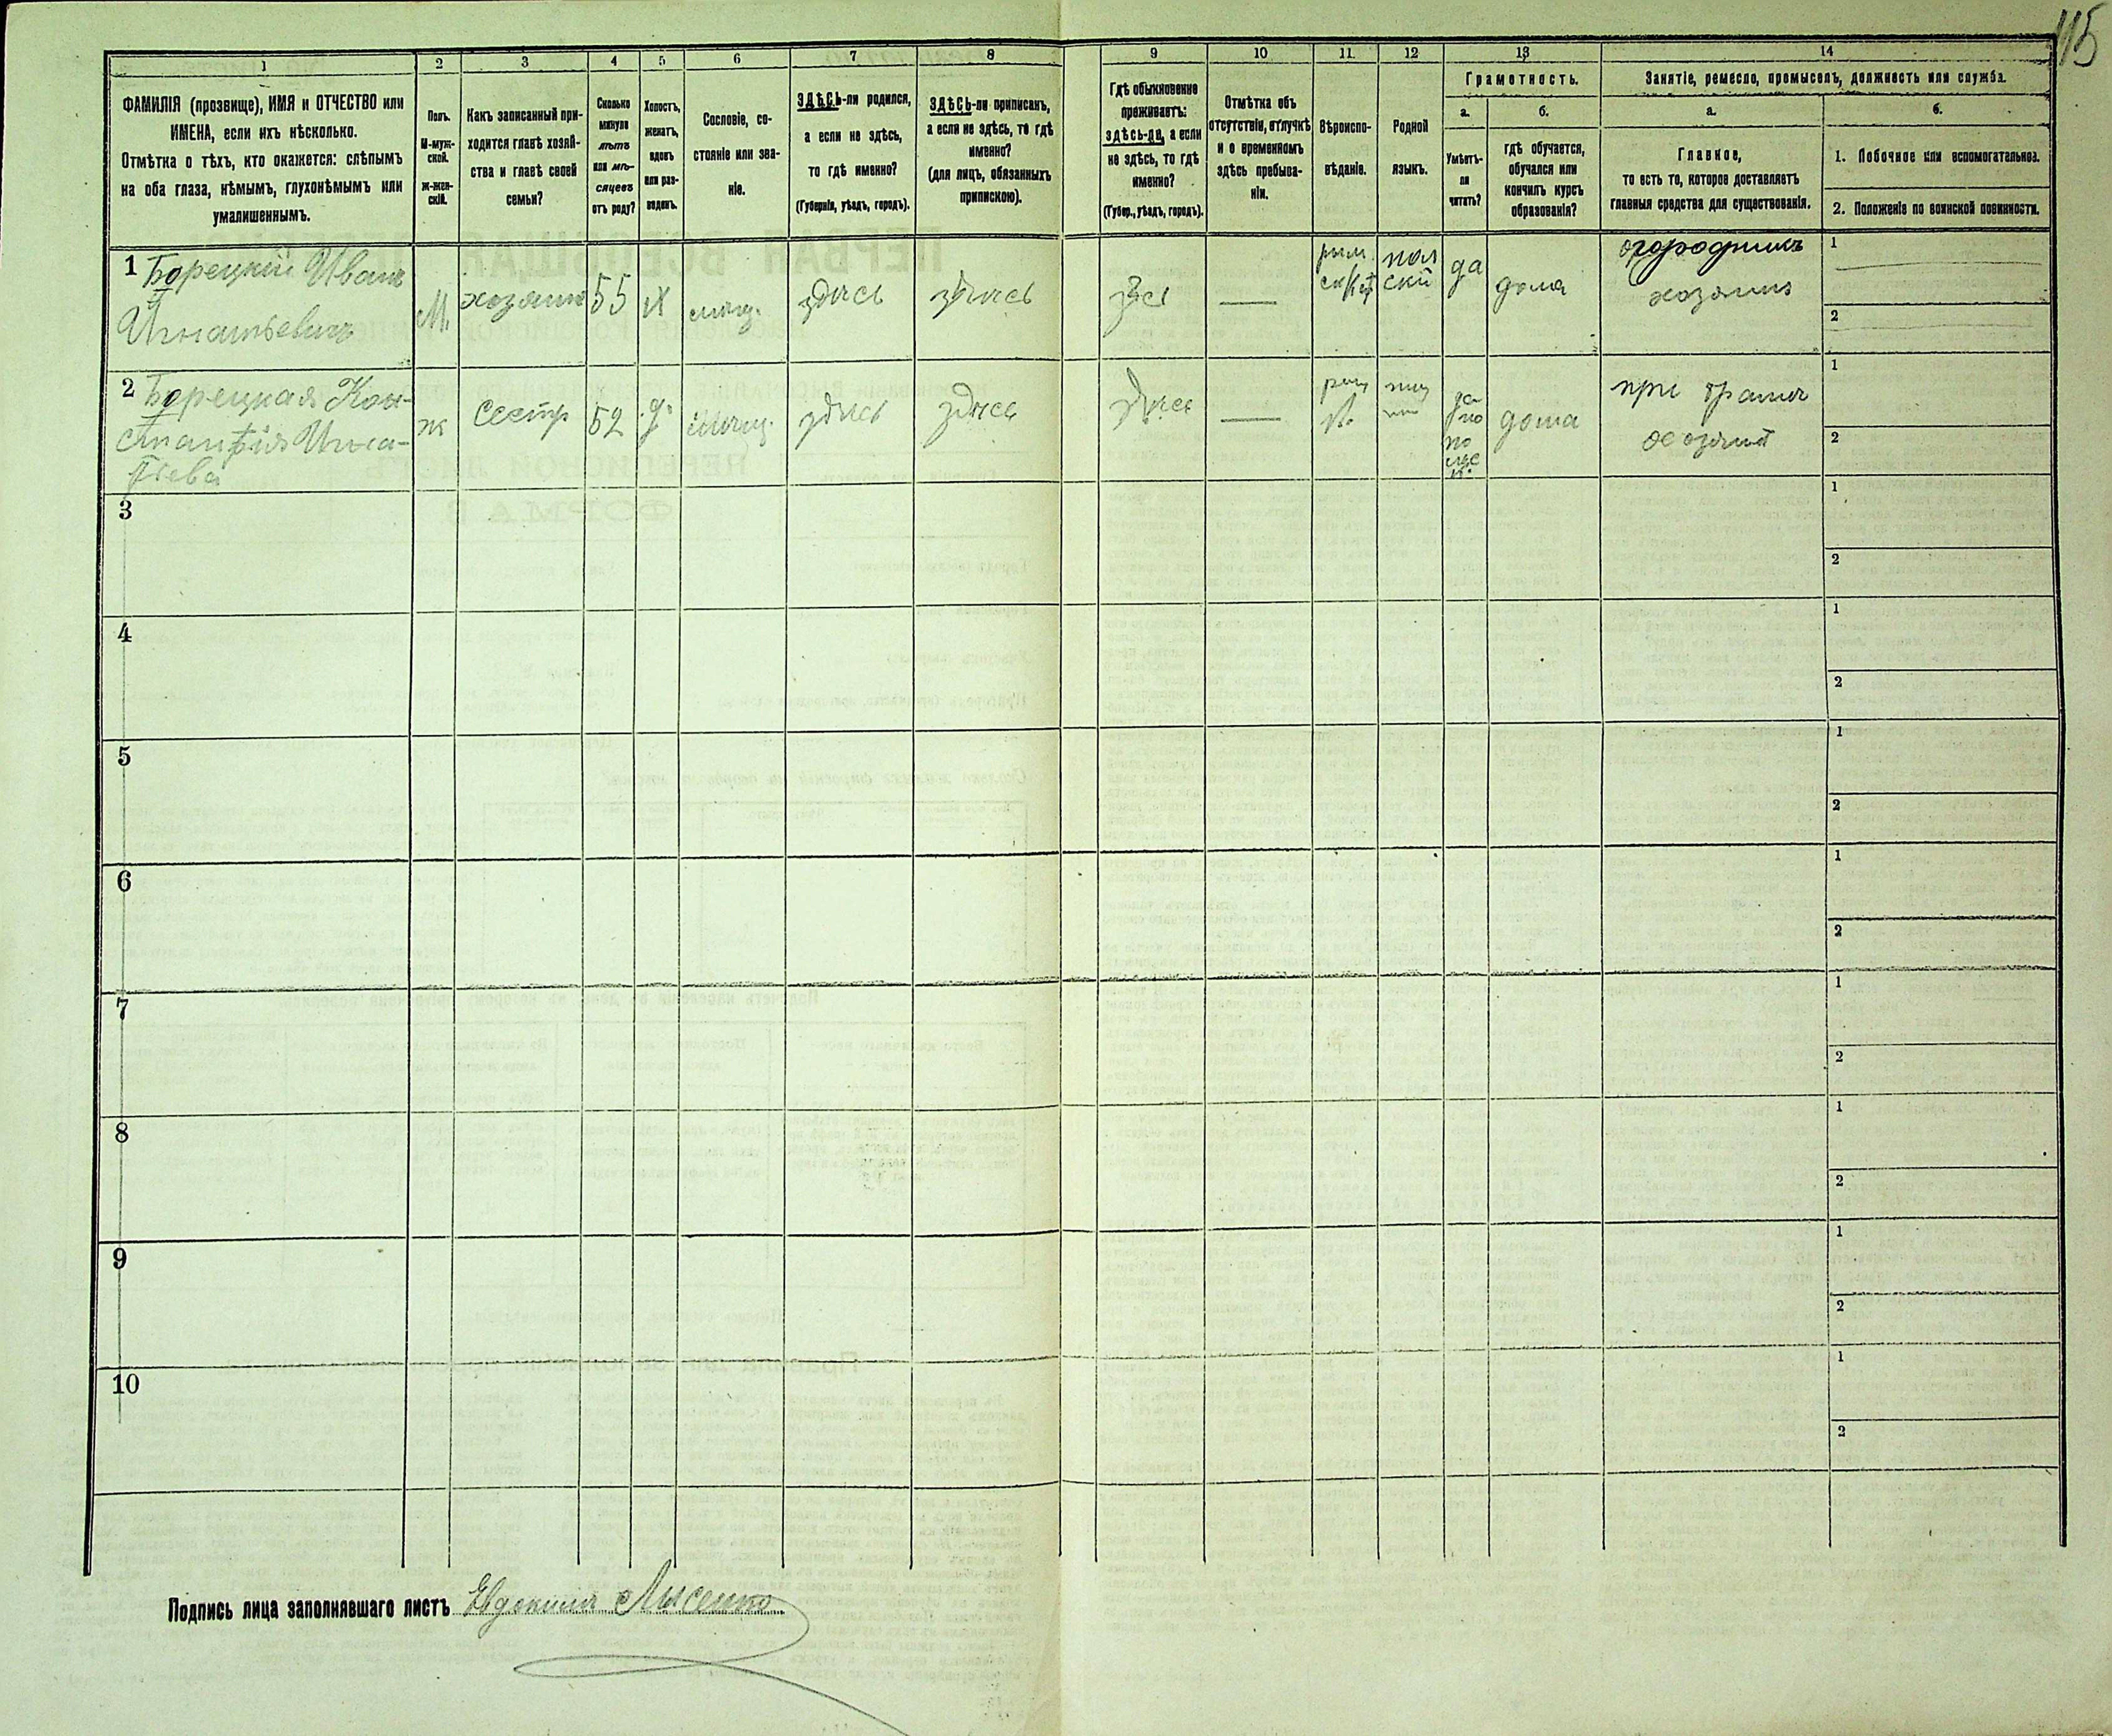 115
1 2 3 4 5 6 7 8 9 10 11. 12 13 14
ФАМИЛІЯ (прозвище), ИМЯ и ОТЧЕСТВО или
ИМЕНА, если ихъ нѣсколько.
Отмѣтка о тѣхъ, кто окажется: слѣпымъ
на оба глаза, нѣмымъ, глухонѣмымъ или
умалишеннымъ.
Полъ.
М-муж-
ской.
Ж-жен-
скій.
Какъ записанный при-
ходится главѣ хозяй-
ства и главѣ своей
семьи?
Сколько
минуло
лѣтъ
или мѣ-
сяцевъ
отъ роду?
Холостъ,
женатъ,
вдовъ
или раз-
веденъ.
Сословіе, со-
стояніе или зва-
ніе.
ЗДѢСЬ-ли родился,
а если не здѣсь,
то гдѣ именно?
(Губернія, уѣздъ, городъ).
ЗДѢСЬ-ли приписанъ,
а если не здѣсь, то гдѣ
именно?
(для лицъ, обязанныхъ
припискою).
Гдѣ обыкновенно
проживаетъ:
здѣсь-ли, а если
не здѣсь, то гдѣ
именно?
(Губер., уѣздъ, городъ).
Отмѣтка объ
отсутствіи, отлучкѣ
и о временномъ
здѣсь пребыва-
ніи.
Вѣроиспо-
вѣданіе.
Родной
языкъ.
Грамотность.
а.
Умѣетъ-
ли
читать?
б.
гдѣ обучается,
обучался или
кончилъ курсъ
образованія?
Занятіе, ремесло, промыселъ, должность или служба.
а.
Главное,
то есть то, которое доставляетъ
главныя средства для существованія.
б.
1. Побочное или вспомогательное.
2. Положеніе по воинской повинности.
1 Борецкій Иванъ
Игнатьевичъ
М.
хозяинъ
55
Х
мѣщ.
здѣсь
здѣсь
здѣсь
—
рим
поль
ский
да
дома
огородникъ
хозяинъ
1
2
2 Борецкая Кон-
стантія Игна-
тьева
ж
сестр
52
д.
мѣщ.
здѣсь
здѣсь
здѣсь
—
да
по
дома
при братѣ
1
2
3
1
2
4
1
2
5
1
2
6
1
2
7
1
2
8
1
2
9
1
2
10
1
2
Подпись лица заполнявшаго листъ Евдокимъ Лысенко